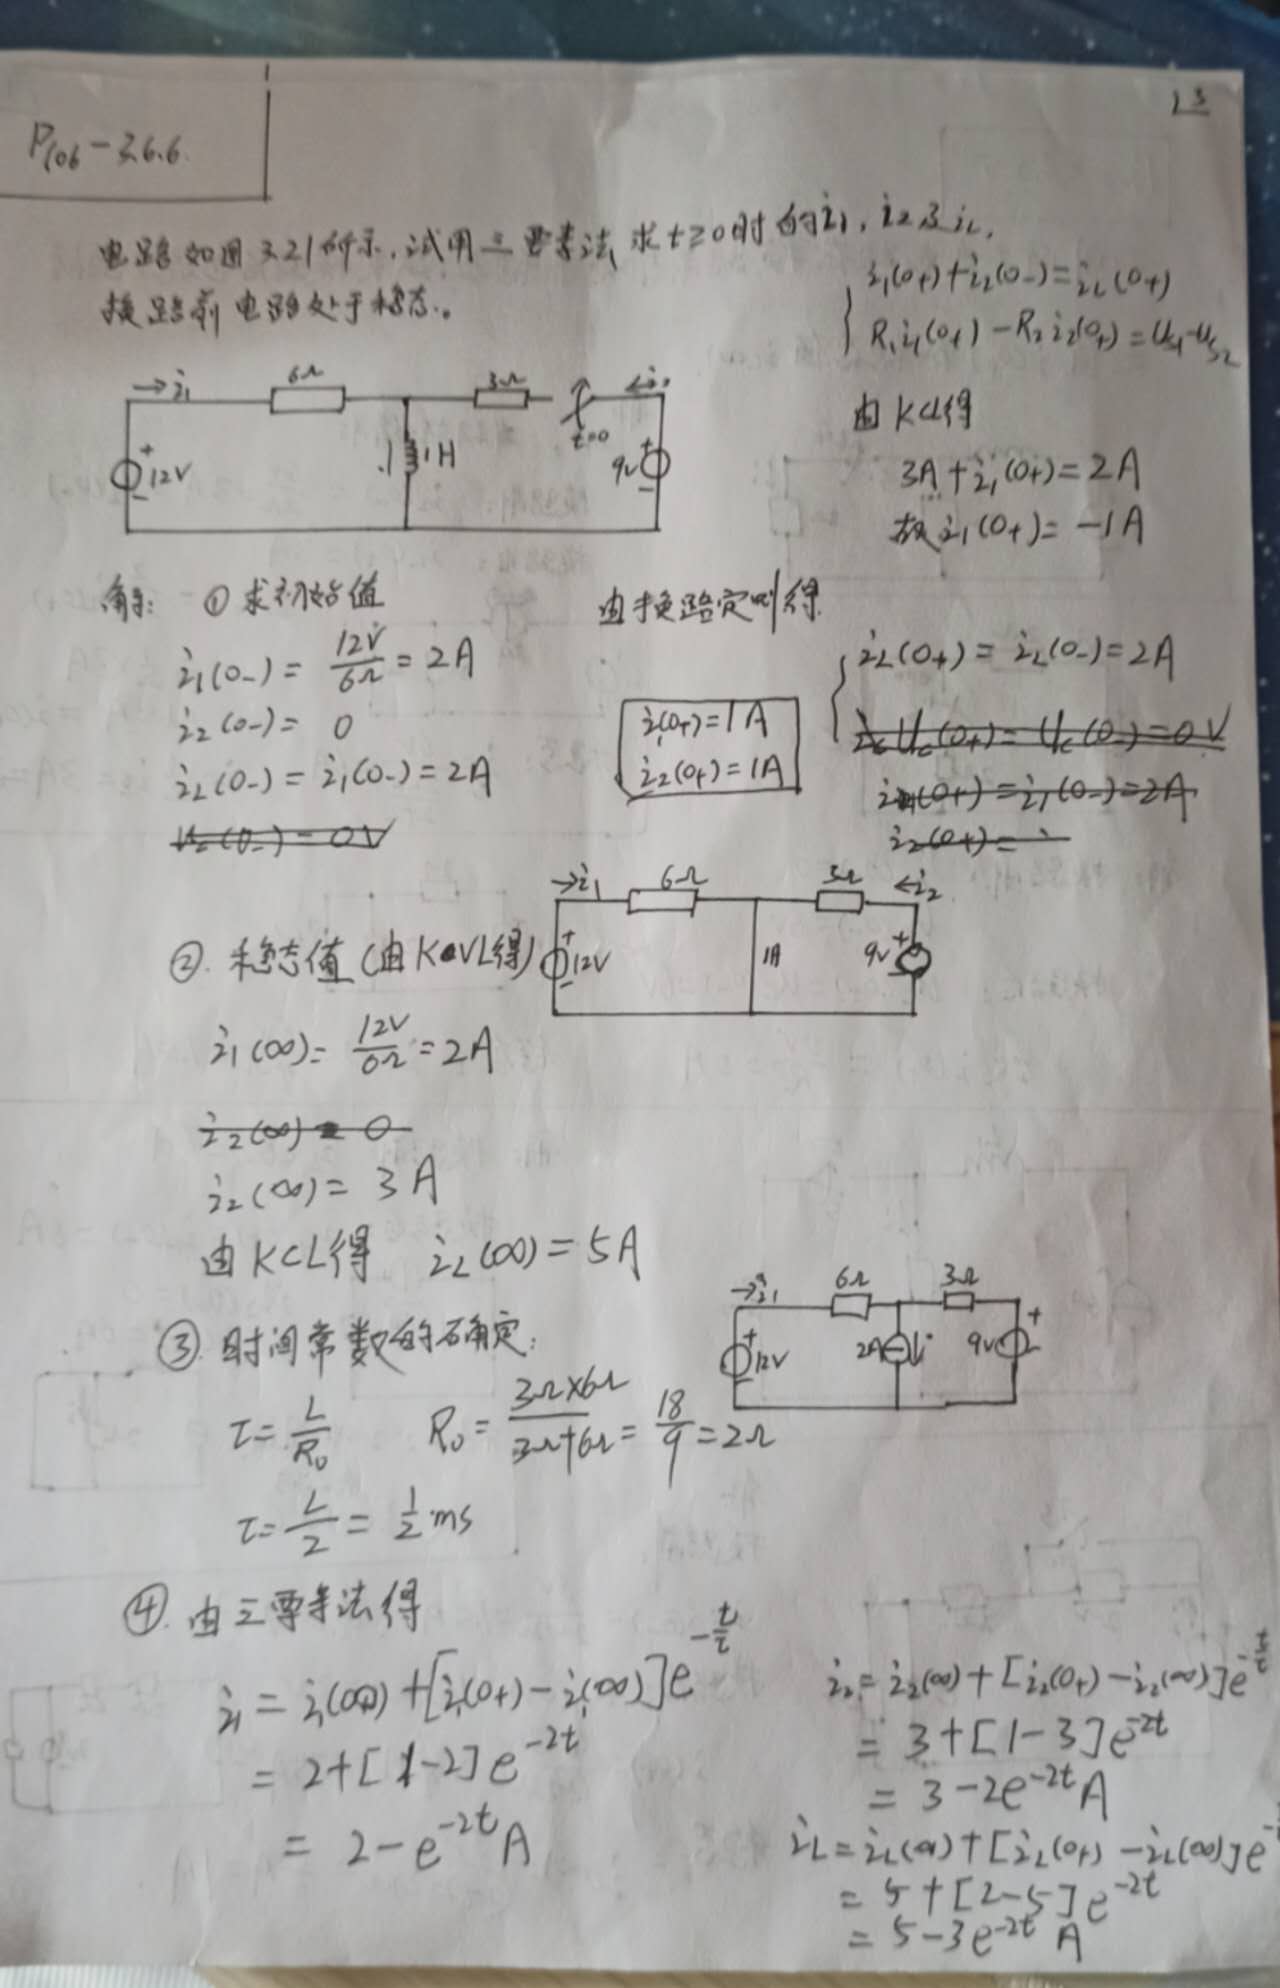 13
P106-3.6.6
电路如图3.21所示,试用三要素法求t≥0时的i1,i2及iL,
换路前电路处于稳态。
i1(0+)+i2(0-)=iL(0+)
R1i1(0+)-R2i2(0+)=Us1-Us2
→i1 6Ω 3Ω ←i2
t=0
+ 12V - 1H 9V + -
由KCL得
3A+i1(0+)=2A
故i1(0+)=-1A
解: ①求初始值
i1(0-)=12V/6Ω=2A
i2(0-)=0
iL(0-)=i1(0-)=2A
uc(0-)=0V
由换路定则得
i1(0+)=1A
i2(0+)=1A
iL(0+)=iL(0-)=2A
Uc(0+)=Uc(0-)=0V
i1(0+)=i1(0-)=2A
i2(0+)=
→i1 6Ω 3Ω ←i2
+ 12V - 1H 9V + -
②.稳态值(由KVL得)
i1(∞)=12V/6Ω=2A
i2(∞)=0
i2(∞)=3A
由KCL得 iL(∞)=5A
→i1 6Ω 3Ω
+ 12V - 2A↓ 9V + -
③.时间常数的确定:
τ=L/R0 R0=3Ω×6Ω/3Ω+6Ω=18/9=2Ω
τ=L/2=1/2ms
④.由三要素法得
i1=i1(∞)+[i1(0+)-i1(∞)]e^-t/τ
=2+[1-2]e^-2t
=2-e^-2t A
i2=i2(∞)+[i2(0+)-i2(∞)]e^-t/τ
=3+[1-3]e^-2t
=3-2e^-2t A
iL=iL(∞)+[iL(0+)-iL(∞)]e^-
=5+[2-5]e^-2t
=5-3e^-2t A